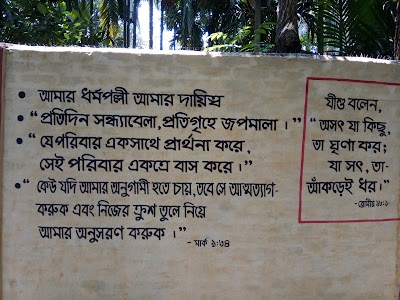 • আমার ধর্মপল্লী আমার দায়িত্ব
• "প্রতিদিন সন্ধ্যাবেলা, প্রতিগৃহে জপমালা।"
• "যেপরিবার একসাথে প্রার্থনা করে,
সেই পরিবার একত্রে বাস করে।"
• "কেউ যদি আমার অনুগামী হতে চায়, তবে সে আত্মত্যাগ-
করুক এবং নিজের ক্রুশ তুলে নিয়ে
আমার অনুসরণ করুক।"
- মার্ক ১:৩৪
যীশু বলেন,
"অসৎ যা কিছু,
তা ঘৃণা কর;
যা সৎ, তা-
আঁকড়েই ধর।"
- রোমীয়